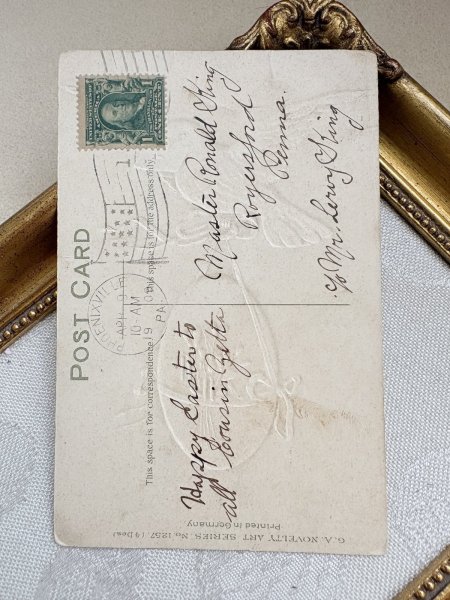 POST CARD
This space is for correspondence
This space is for the address only
PHOENIXVILLE
APR 9
10-AM
19
PA.
1
Happy Easter to
all Cousin Zetta
Master Ronald King
Royersford
Penna.
c/o Mr. Lewy King
G. A. NOVELTY ART SERIES No. 1257 (9 Des)
Printed in Germany